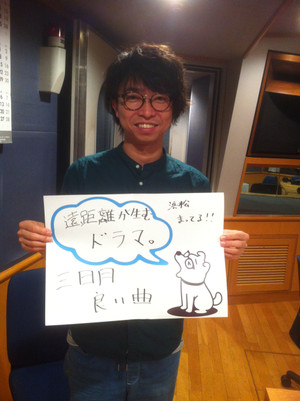 遠距離が生む
ドラマ。
浜松
まってる!!
三日月
良い曲